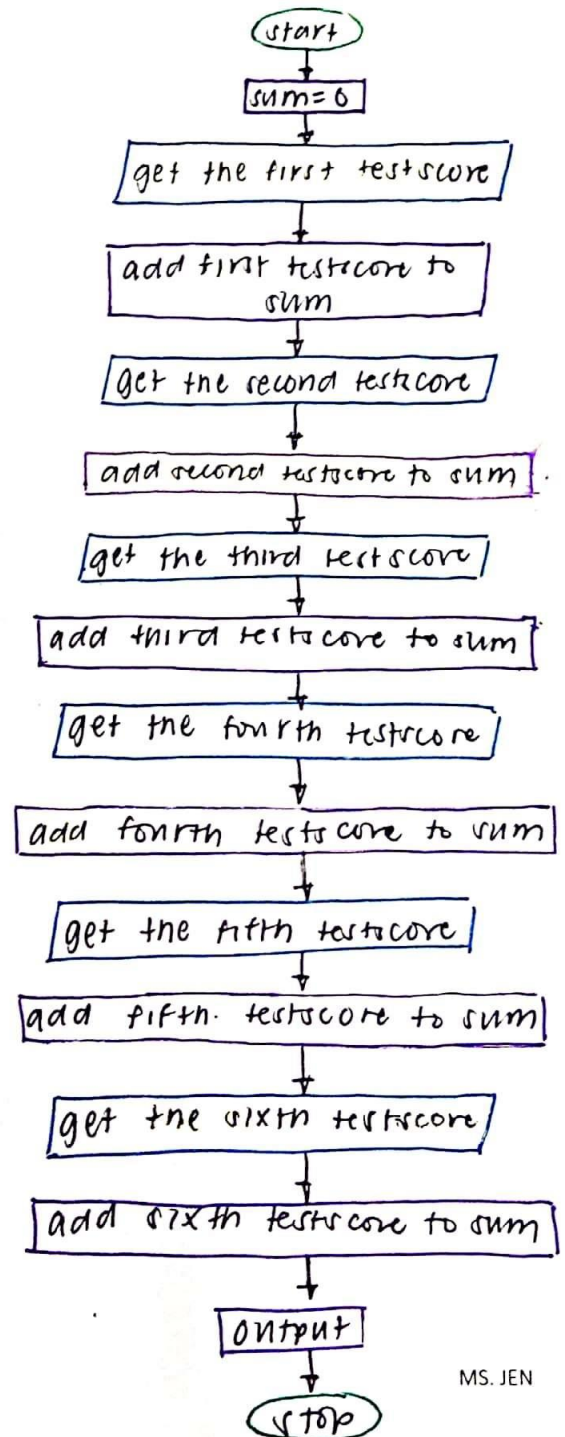 start
sum=0
get the first testscore
add first testscore to
sum
get the second testscore
add second testscore to sum
get the third testscore
add third testscore to sum
get the fourth testscore
add fourth testscore to sum
get the fifth testscore
add fifth. testscore to sum
get the sixth testscore
add sixth testscore to sum
output
MS. JEN
stop